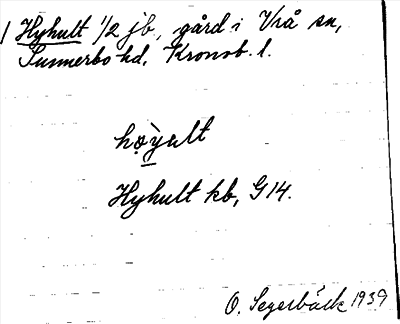 1 Hyhult 1/2 jb, gård i Vrå sn,
Sunnerbo hd. Kronob. l.
hø̀yult
Hyhult kb, G 14.
O. Segerbäck 1939